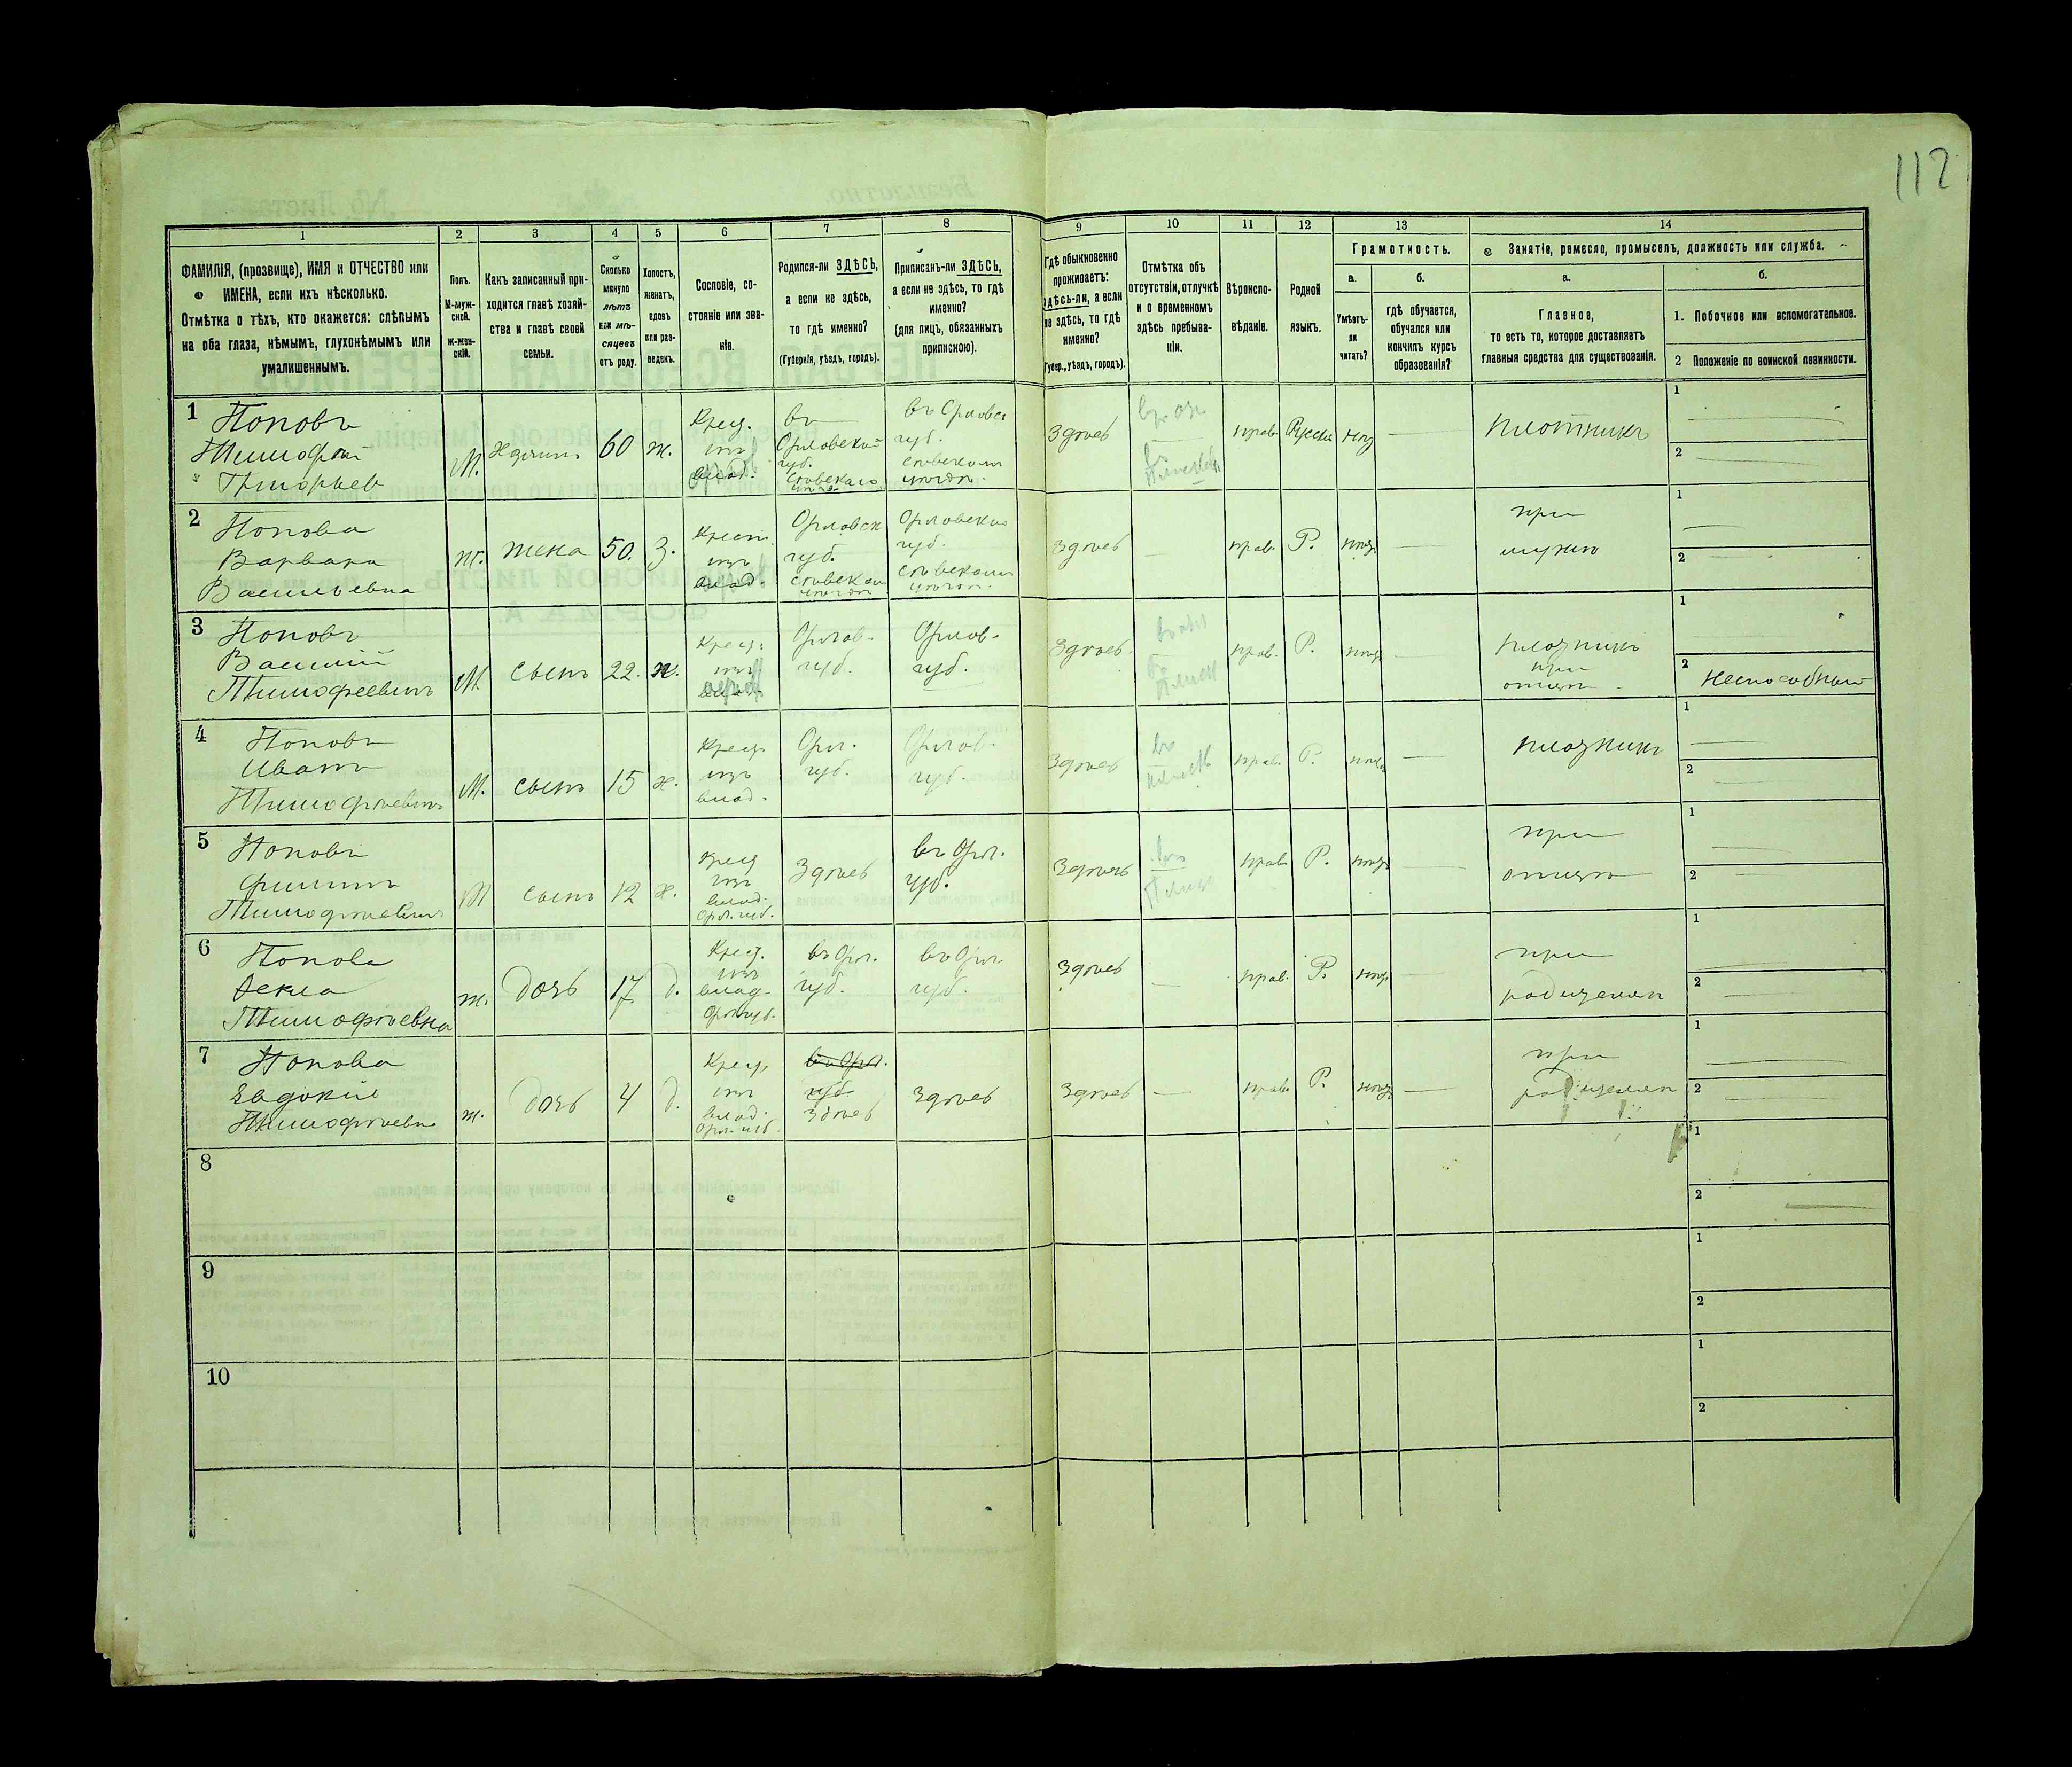 112
1 2 3 4 5 6 7 8 9 10 11 12 13 14
ФАМИЛІЯ, (прозвище), ИМЯ и ОТЧЕСТВО или
ИМЕНА, если ихъ нѣсколько.
Отмѣтка о тѣхъ, кто окажется: слѣпымъ
на оба глаза, нѣмымъ, глухонѣмымъ или
умалишеннымъ.
Полъ.
М-муж-
ской.
Ж-жен-
скій.
Какъ записанный при-
ходится главѣ хозяй-
ства и главѣ своей
семьи.
Сколько
минуло
лѣтъ
или мѣ-
сяцевъ
отъ роду.
Холостъ,
женатъ,
вдовъ
или раз-
веденъ.
Сословіе, со-
стояніе или зва-
ніе.
Родился-ли ЗДѢСЬ,
а если не здѣсь,
то гдѣ именно?
(Губернія, уѣздъ, городъ).
Приписанъ-ли ЗДѢСЬ,
а если не здѣсь, то гдѣ
именно?
(для лицъ, обязанныхъ
припискою).
Гдѣ обыкновенно
проживаетъ:
здѣсь-ли, а если
не здѣсь, то гдѣ
именно?
(Губер., уѣздъ, городъ).
Отмѣтка объ
отсутствіи, отлучкѣ
и о временномъ
здѣсь пребыва-
ніи.
Вѣроиспо-
вѣданіе.
Родной
языкъ.
Грамотность.
а.
Умѣетъ-
ли
читать?
б.
гдѣ обучается,
обучался или
кончилъ курсъ
образованія?
Занятія, ремесло, промыселъ, должность или служба.
а.
Главное,
то есть то, которое доставляетъ
главныя средства для существованія.
б.
1. Побочное или вспомогательное.
2 Положеніе по воинской повинности.
1 Поповъ
Тимофей
Григорьев
М. 60 ж.
Крест.
изъ
въ
Орловской
губ.
Сѣвскаго
въ Орловск
губ.
Сѣвскомъ
уѣздѣ.
Здѣсь
прав. Русскій нѣт
плотникъ
1
2
2 Попова
Варвара
Васильевна
ж. жена 50. З.
Крест.
изъ
влад.
Орловск
губ.
Сѣвском
уѣздѣ
Орловской
губ.
Сѣвскомъ
уѣздѣ.
Здѣсь
прав. Р. нѣт
при
мужѣ
1
2
3 Поповъ
Василій
Тимофеевичъ
М сынъ 22.
Крест.
изъ
Орлов.
губ.
Орлов.
губ.
Здѣсь
прав. Р. нѣт
плотникъ
при
отцѣ
1
2 Неспособный
4 Поповъ
Иванъ
Тимофѣевичъ
М. сынъ 15 х.
Крест.
изъ
влад.
Орл.
губ.
Орлов.
губ.
Здѣсь
прав. Р. нѣт
плотникъ
1
2
5 Поповъ
Филиппъ
Тимофѣевичъ
М сынъ 12 х.
Крест
изъ
влад.
Орл. губ.
Здѣсь
въ Орл.
губ.
Здѣсь
прав. Р. нѣт
при
отцѣ
1
2
6 Попова
Фекла
Тимофѣевна
ж. дочь 17 д.
Крест.
изъ
влад.
Орл. губ.
въ Орл.
губ.
въ Орл.
губ.
Здѣсь
прав. Р. нѣт
при
родителях
1
2
7 Попова
Евдокія
Тимофѣевна
ж. дочь 4 д.
Крест.
изъ
влад.
Орл. губ.
въ Орл.
губ.
Здѣсь
Здѣсь
Здѣсь
прав. Р. нѣт
при
родителях
1
2
8
1
2
9
1
2
10
1
2